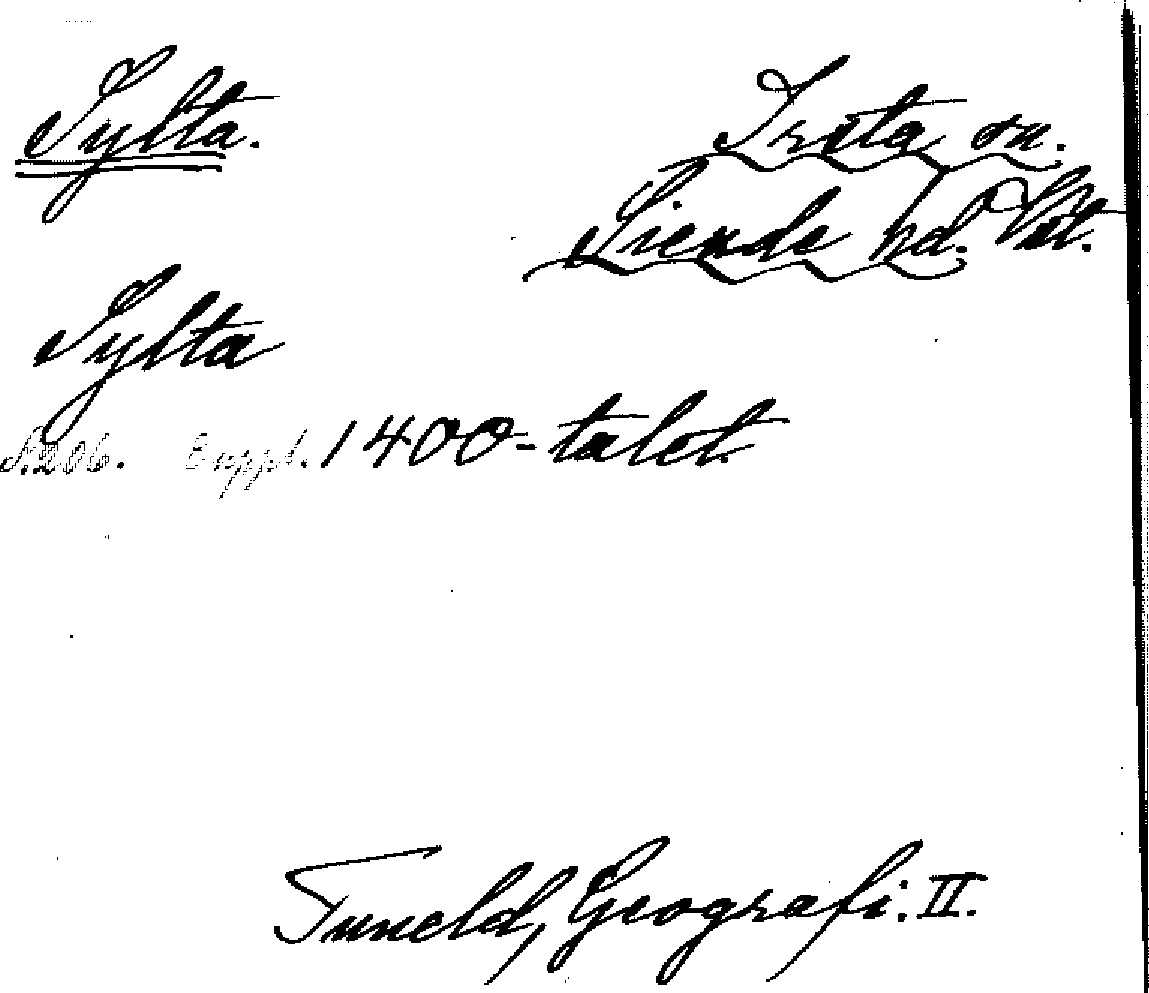 Sylta.
Irsta sn.
Siende hd. Vst.
Sylta
S. 206. Suppl. 1400-talet.
Tuneld, Geografi. II.